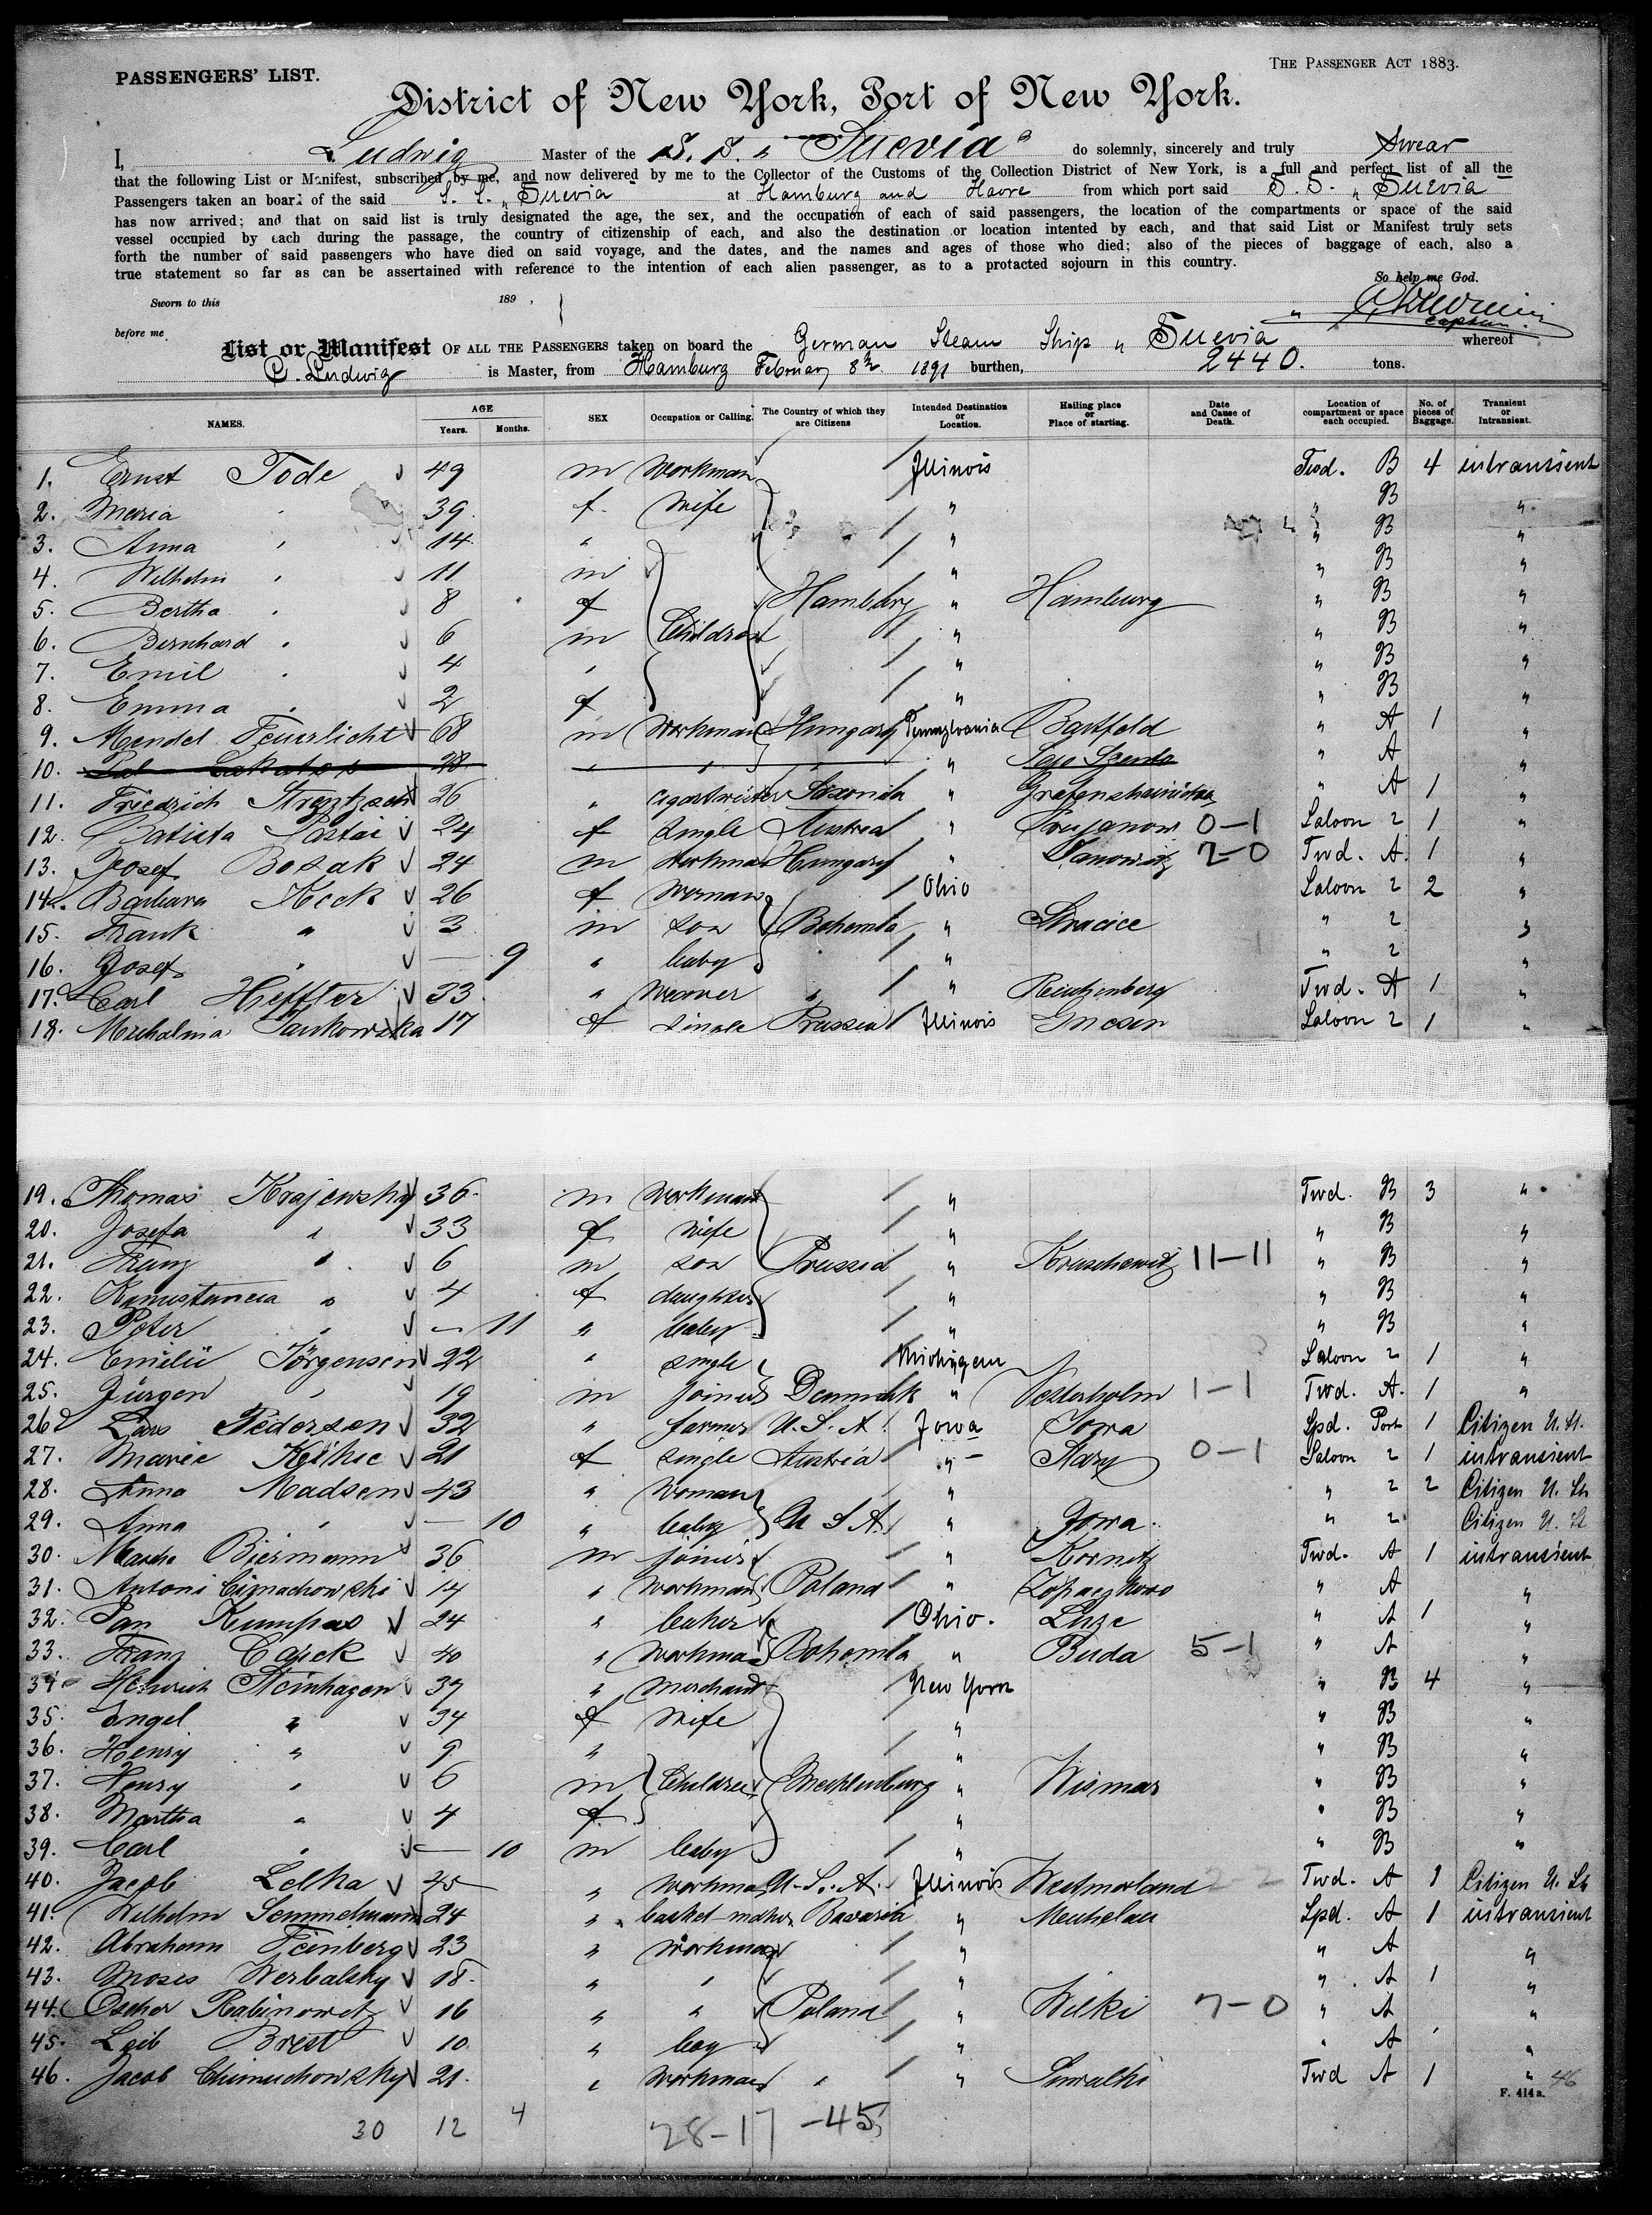 PASSENGERS' LIST.
THE PASSENGER ACT 1883.
District of New York, Port of New York.
I, Ludwig Master of the S. S. „ Suevia " do solemnly, sincerely and truly Swear
that the following List or Manifest, subscribed by me, and now delivered by me to the Collector of the Customs of the Collection District of New York, is a full and perfect list of all the
Passengers taken an board of the said S. S. „ Suevia at Hamburg and Havre from which port said S. S. „ Suevia
has now arrived; and that on said list is truly designated the age, the sex, and the occupation of each of said passengers, the location of the compartments or space of the said
vessel occupied by each during the passage, the country of citizenship of each, and also the destination or location intented by each, and that said List or Manifest truly sets
forth the number of said passengers who have died on said voyage, and the dates, and the names and ages of those who died; also of the pieces of baggage of each, also a
true statement so far as can be assertained with reference to the intention of each alien passenger, as to a protacted sojourn in this country.
So help me God.
Sworn to this 189 ,
Captain.
before me
List or Manifest OF ALL THE PASSENGERS taken on board the German Steam Ship „ Suevia whereof
C. Ludwig is Master, from Hamburg February 8th 1891 burthen, 2440. tons.
NAMES. AGE Years. Months. SEX Occupation or Calling. The Country of which they are Citizens Intended Destination or Location. Hailing place or Place of starting. Date and Cause of Death. Location of compartment or space each occupied. No. of pieces of Baggage. Transient or Intransient.
1. Ernst Tode 49 m Workman Illinois Twd. B 4 intransient
2. Maria " 39 f. Wife " " B "
3. Anna " 14 " " " B "
4. Wilhelm " 11 m " " B "
5. Bertha " 8 f Hamburg " Hamburg " B "
6. Bernhard " 6 m Children " " B "
7. Emil " 4 " " " B "
8. Emma " 2 f " " B "
9. Mendel Feuerlicht 68 m Workman Hungary Pennsylvania Bartfeld " A 1 "
10. 28 " " " " A "
11. Friedrich 26 " Saxonia " " A 1 "
12. Batista 24 f Single Austria " 0-1 Saloon 2 1 "
13. Josef Bosak 24 m Workman Hungary " Janowitz 2-0 Twd. A. 1 "
14. Barbara Keck 26 f Woman Ohio Saloon 2 2 "
15. Frank " 3 m son Bohemia " Stracice " 2 "
16. Josef " — 9 " baby " " 2 "
17. Carl Heffter 33 " Weaver " " Reichenberg Twd. A 1 "
18. 17 f single Prussia Illinois Gnesen Saloon 2 1 "
19. Thomas Krajewsky 36 m Workman " Twd. B 3 "
20. Josefa " 33 f wife " " B "
21. Franz " 6 m son Prussia " Kruschewitz 11-11 " B "
22. " 4 f daughter " " B "
23. Peter " — 11 " baby " " B "
24. Emilie Jörgensen 22 " single Michigan Saloon 2 1 "
25. Jürgen " 19 m joiner Denmark " Vesterholm 1-1 Twd. A. 1 "
26. Lars Pedersen 32 " farmer U. S. A. Iowa Iowa Spd. Port 1 Citizen U. St.
27. Marie 21 f single Austria " 0-1 Saloon 2 1 intransient
28. Anna Madsen 43 " Woman " " 2 2 Citizen U. St.
29. Anna " — 10 " baby U S A. " Iowa. " 2 Citizen U. St
30. Biermann 36 m joiner " Kornitz Twd. A 1 intransient
31. Antoni 14 " workman Poland " " A "
32. Jan Kumpas 24 " baker Ohio. Luze " A 1 "
33. Franz 40 " Workman Bohemia " Buda 5-1 " A "
34. Heinrich Steinhagen 37 " Merchant New York " B 4 "
35. Engel " 34 f Wife " " B "
36. Henny " 9 " " " B "
37. Henry " 6 m Children Mecklenburg " Wismar " B "
38. Martha " 4 f " " B "
39. Carl " — 10 m baby " " B "
40. Jacob Lelka 45 " workman U. S. A. Illinois Westmorland 2-2 Twd. A 1 Citizen U. St.
41. Wilhelm Semmelmann 24 " basket-maker Bavaria " Spd. A 1 intransient
42. Abraham Feinberg 23 " Workman " " A "
43. Moses Werbalsky 18 " " " " A 1 "
44. Oscher Rabinowitz 16 " " Poland " Wilki 7-0 " A "
45. Leib Brest 10 " boy " " A "
46. Jacob 21 " Workman " " Suwalki Twd A 1 "
46
F. 414a.
30 12 4 28-17 -45